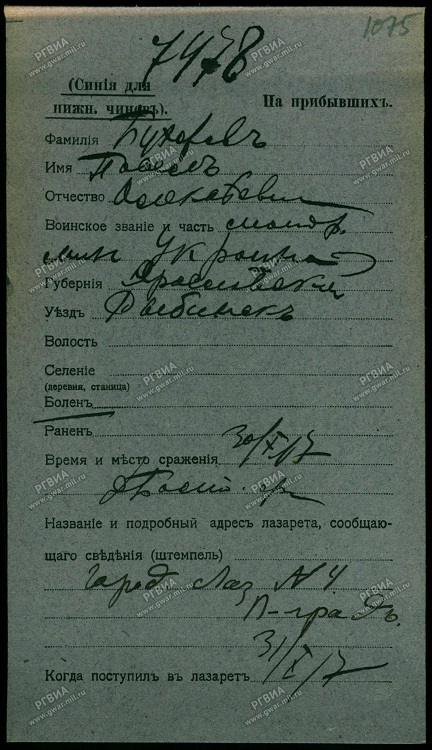 1075
7478
(Синія для нижн. чиновъ).
На прибывшихъ.
Фамилія
Имя Павелъ
Отчество
Воинское званіе и часть
Украина
Губернія Ярославская
Уѣздъ Рыбинскъ
Волость
Селеніе
(деревня, станица)
Боленъ
Раненъ
Время и мѣсто сраженія 30/X/17
Названіе и подробный адресъ лазарета, сообщаю-
щаго свѣдѣнія (штемпель)
Город. Лаз. № 4.
П-градъ.
31/X/17
Когда поступил въ лазаретъ
РГВИА
www.gwar.mil.ru